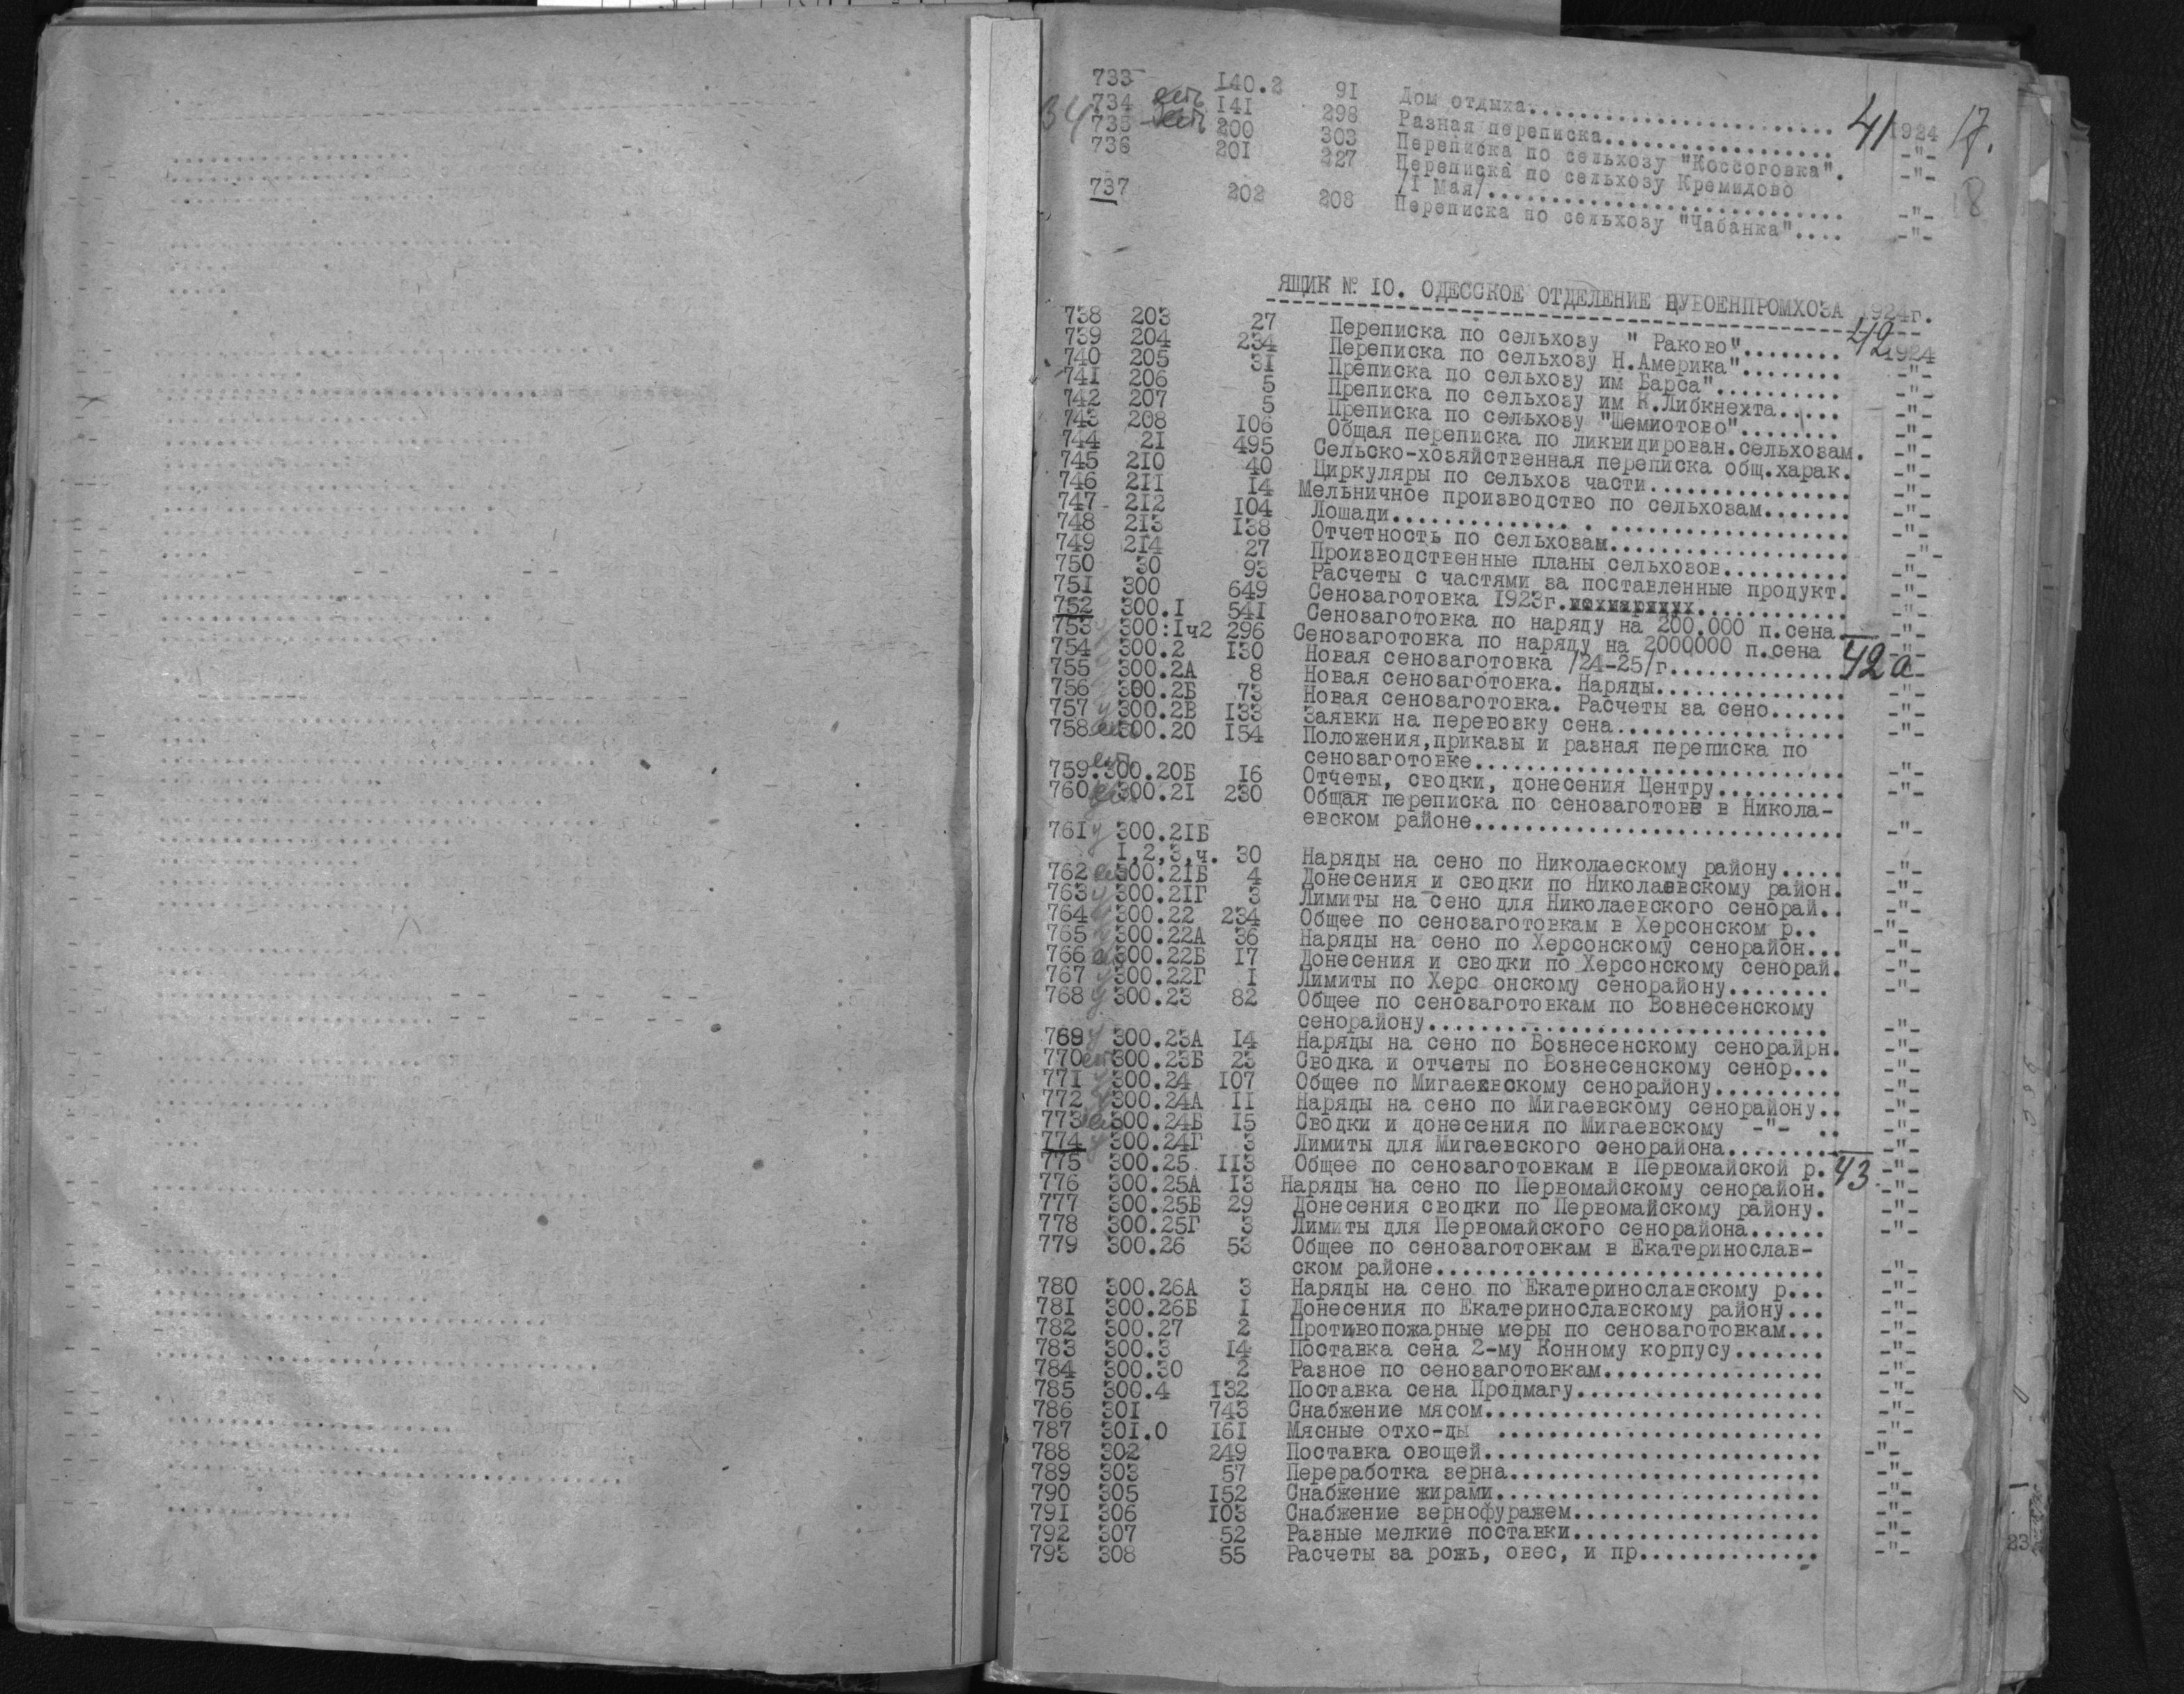 733 140.2 91 Дом отдыха........................ 41 1924 17.
34 734 есть 141 298 Разная переписка.................. -"-
735 есть 200 303 Переписка по сельхозу "Коссоговка". -"-
736 201 227 Переписка по сельхозу Кремидово
/I Мая/............................ -"- 18
737 202 208 Переписка по сельхозу "Чабанка".... -"-
ЯЩИК № IO. ОДЕССКОЕ ОТДЕЛЕНИЕ ЦУВОЕНПРОМХОЗА 1924г.
738 203 27 Переписка по сельхозу " Раково"........ 42 1924
739 204 234 Переписка по сельхозу Н.Америка"........ -"-
740 205 31 Преписка по сельхозу им Барса".......... -"-
741 206 5 Преписка по сельхозу им К.Либкнехта..... -"-
742 207 5 Преписка по сельхозу "Шемиотово"........ -"-
743 208 106 Общая переписка по ликвидирован.сельхозам. -"-
744 21 495 Сельско-хозяйственная переписка общ.харак. -"-
745 210 40 Циркуляры по сельхоз части................ -"-
746 211 14 Мельничное производство по сельхозам....... -"-
747 212 104 Лошади.............. . ................... -"-
748 213 138 Отчетность по сельхозам................... -"-
749 214 27 Производственные планы сельхозов.......... -"-
750 30 93 Расчеты с частями за поставленные продукт. -"-
751 300 649 Сенозаготовка 1923г............. -"-
752 300.I 541 Сенозаготовка по наряду на 200.000 п.сена -"-
753 у 300:Iч2 296 Сенозаготовка по наряду на 2000000 п.сена -"-
754 300.2 130 Новая сенозаготовка /24-25/г............. 42а -"-
755 300.2А 8 Новая сенозаготовка. Наряды............... -"-
756 300.2Б 73 Новая сенозаготовка. Расчеты за сено...... -"-
757 у 300.2В 133 Заявки на перевозку сена.................. -"-
758 есть 300.20 154 Положения,приказы и разная переписка по
сенозаготовке............................. -"-
759 есть 300.20Б 16 Отчеты, сводки, донесения Центру.......... -"-
760 300.21 230 Общая переписка по сенозаготове в Никола-
евском районе............................. -"-
761 у 300.21Б
I,2,3,ч. 30 Наряды на сено по Николаескому району..... -"-
762 есть 300.21Б 4 Донесения и сводки по Николаевскому район. -"-
763 у 300.21Г 3 Лимиты на сено для Николаевского сенорай.. -"-
764 у 300.22 234 Общее по сенозаготовкам в Херсонском р.. -"-
765 у 300.22А 36 Наряды на сено по Херсонскому сенорайон... -"-
766 есть 300.22Б 17 Донесения и сводки по Херсонскому сенорай. -"-
767 у 300.22Г I Лимиты по Херс онскому сенорайону........ -"-
768 у 300.23 82 Общее по сенозаготовкам по Вознесенскому
сенорайону................................ -"-
769 у 300.23А 14 Наряды на сено по Вознесенскому сенорайрн. -"-
770 есть 300.23Б 23 Сводка и отчеты по Вознесенскому сенор... -"-
771 у 300.24 107 Общее по Мигаевскому сенорайону.......... -"-
772 у 300.24А II Наряды на сено по Мигаевскому сенорайону.. -"-
773 есть 300.24Б 15 Сводки и донесения по Мигаевскому -"- .. -"-
774 у 300.24Г 3 Лимиты для Мигаевского сенорайона......... -"-
775 300.25 113 Общее по сенозаготовкам в Первомайской р. 43 -"-
776 300.25А 13 Наряды на сено по Первомайскому сенорайон. -"-
777 300.25Б 29 Донесения сводки по Первомайскому району. -"-
778 300.25Г 3 Лимиты для Первомайского сенорайона...... -"-
779 300.26 53 Общее по сенозаготовкам в Екатеринослав-
ском районе............................... -"-
780 300.26А 3 Наряды на сено по Екатеринославскому р... -"-
781 300.26Б I Донесения по Екатеринославскому району... -"-
782 300.27 2 Противопожарные меры по сенозаготовкам... -"-
783 300.3 14 Поставка сена 2-му Конному корпусу....... -"-
784 300.30 2 Разное по сенозаготовкам................. -"-
785 300.4 132 Поставка сена Продмагу................... -"-
786 301 743 Снабжение мясом.......................... -"-
787 301.0 161 Мясные отхо-ды ......................... -"-
788 302 249 Поставка овощей.......................... -"-
789 303 57 Переработка зерна........................ -"-
790 305 152 Снабжение жирами......................... -"-
791 306 103 Снабжение зернофуражем................... -"-
792 307 52 Разные мелкие поставки................... -"-
793 308 55 Расчеты за рожь, овес, и пр.............. -"-
23